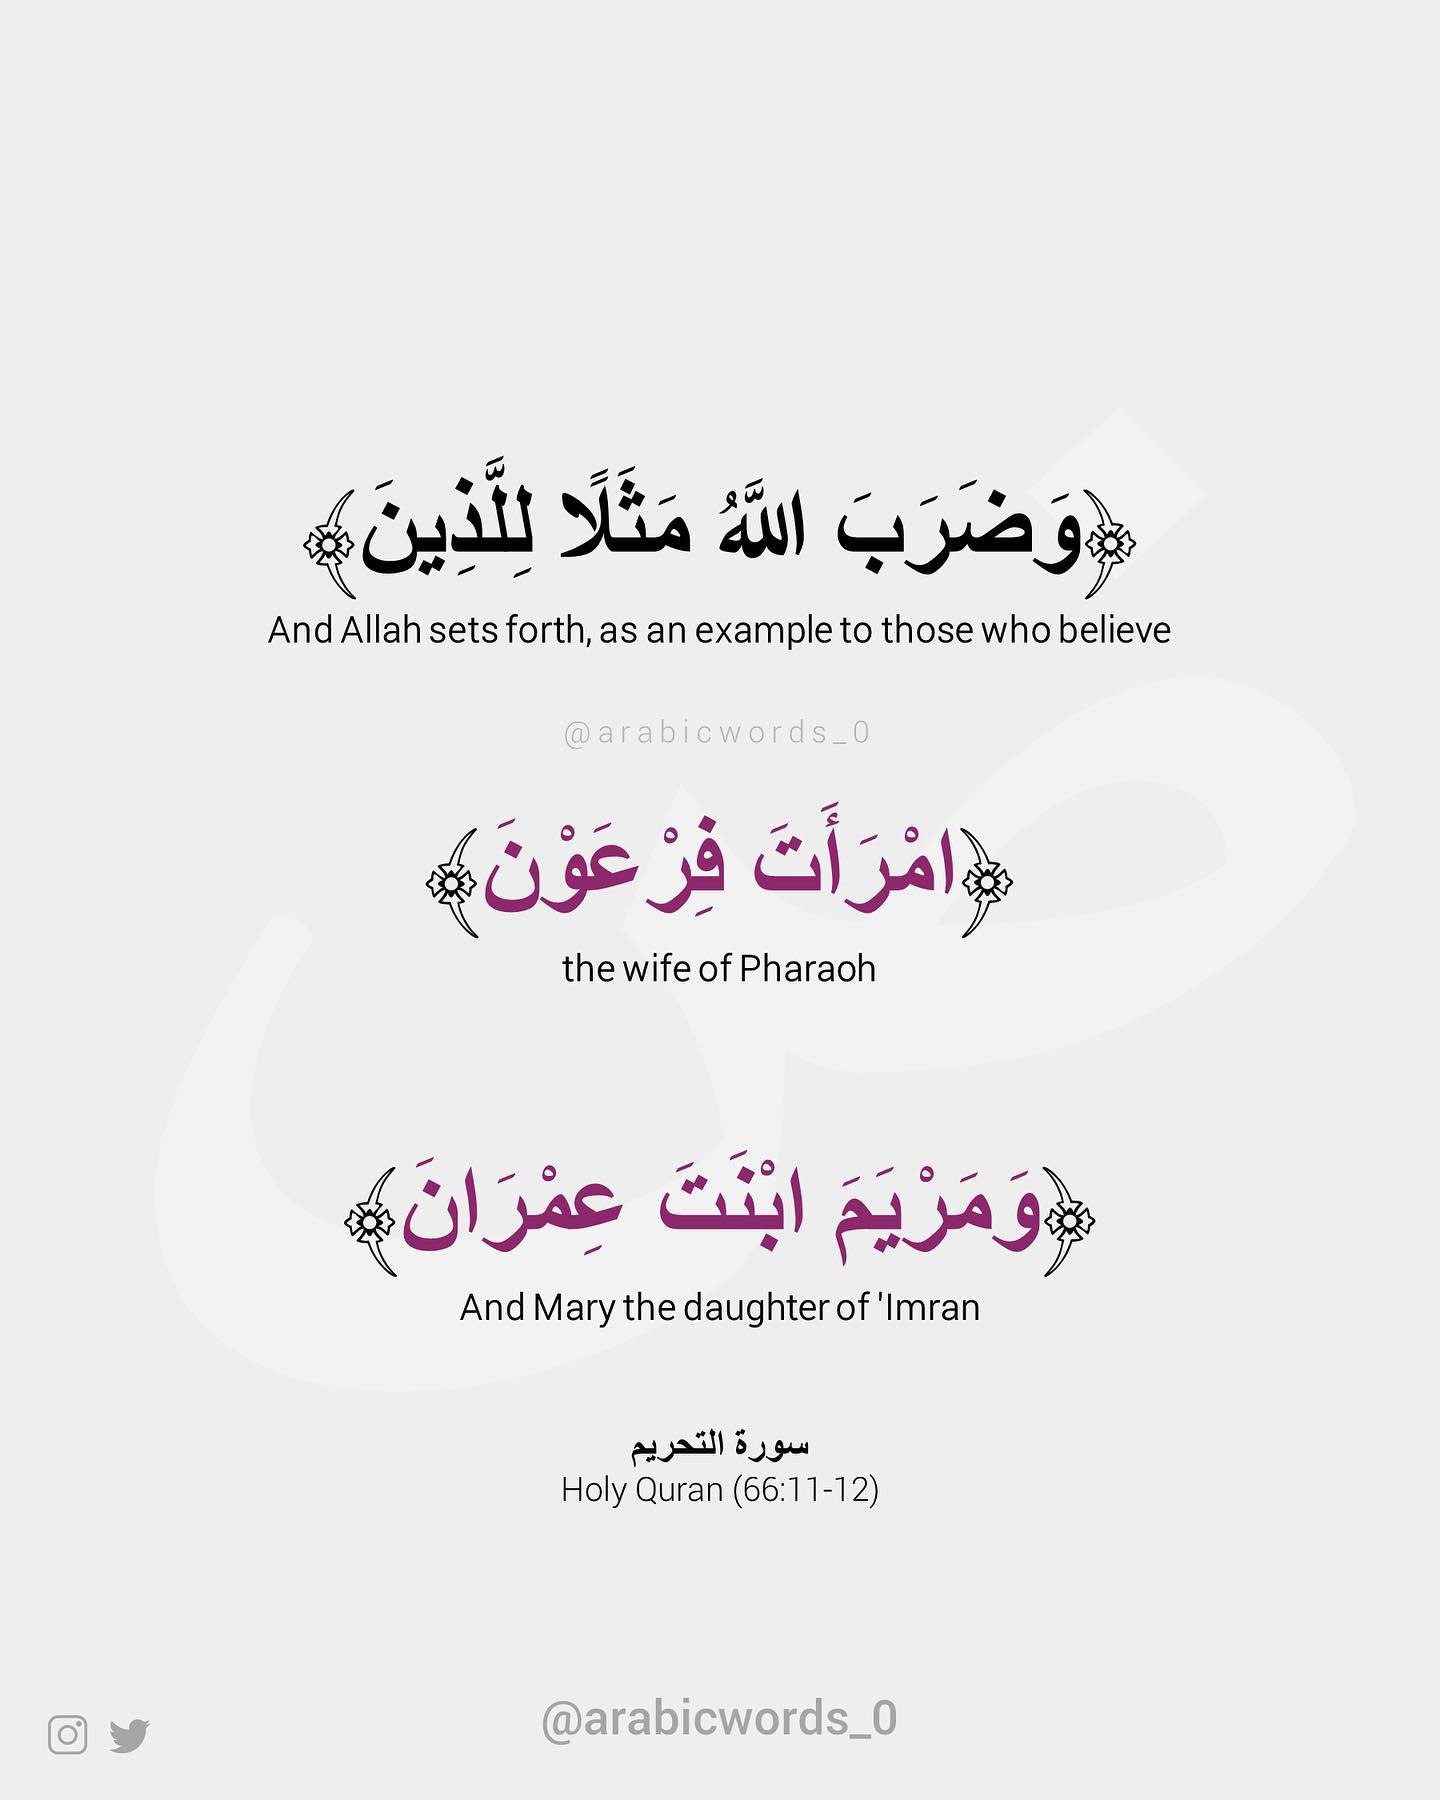 ﴿وَضَرَبَ اللَّهُ مَثَلًا لِلَّذِينَ﴾
And Allah sets forth, as an example to those who believe
@arabicwords_0
﴿امْرَأَتَ فِرْعَوْنَ﴾
the wife of Pharaoh
﴿وَمَرْيَمَ ابْنَتَ عِمْرَانَ﴾
And Mary the daughter of 'Imran
سورة التحريم
Holy Quran (66:11-12)
@arabicwords_0